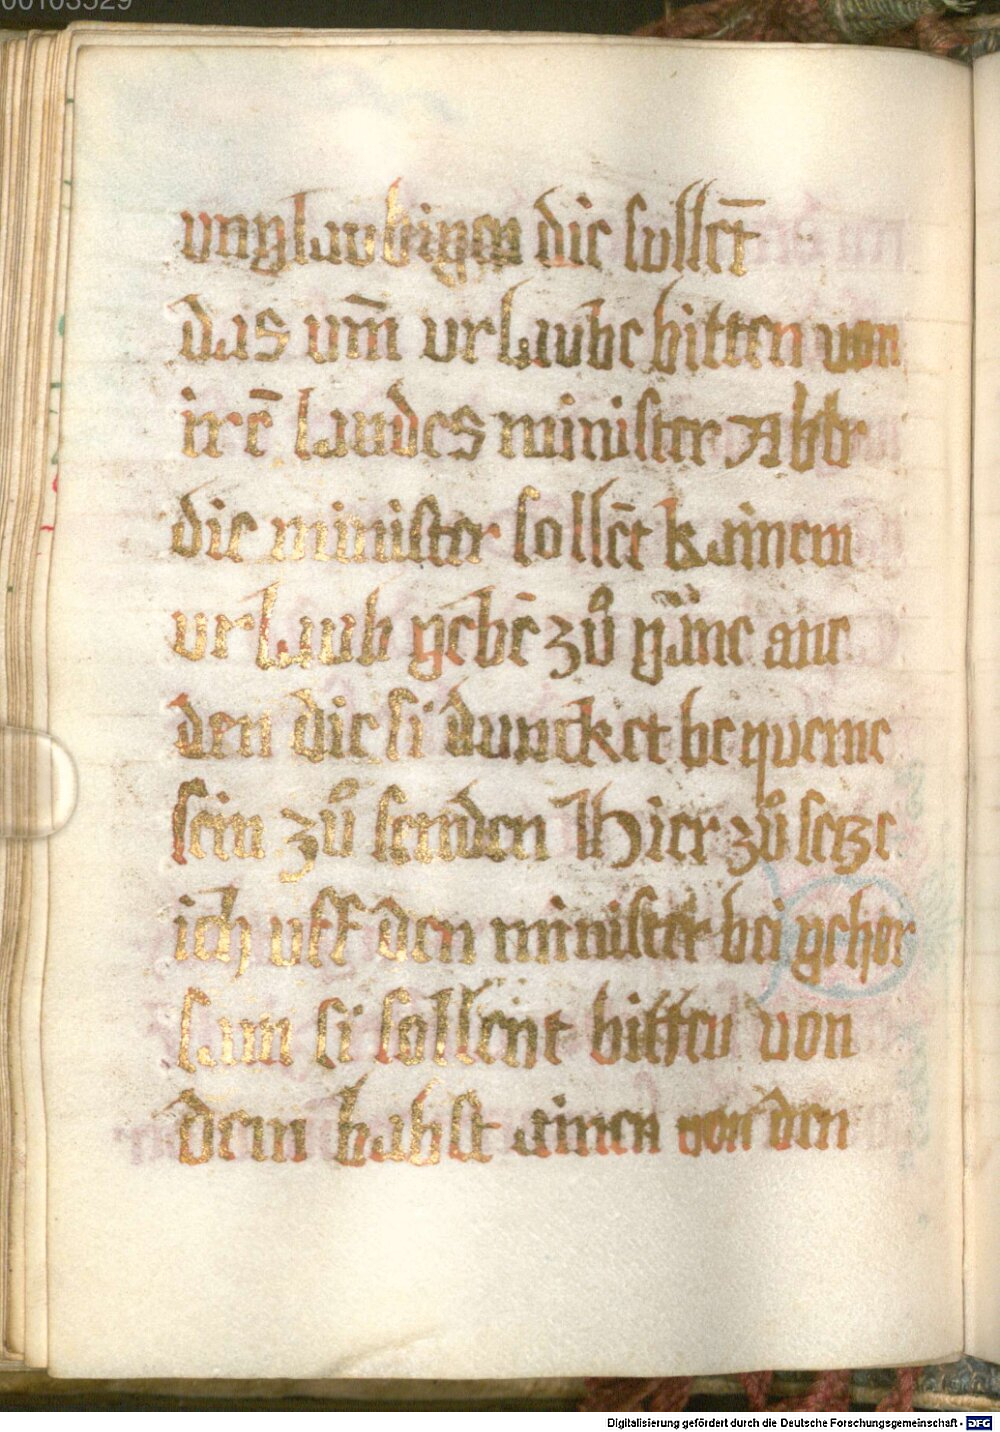 00103529
vnglaubigen die sullēt
das vm̄ vrlaube bitten von
irē landes minister Aber
die minister sollēt kainem
vrlaub gebē zů gäine ane
den die si duncket bequeme
sein zů senden Hier zů setze
ich vff den minister bei gehor
sam si sollent bitten von
dem babst ainen von den
Digitalisierung gefördert durch die Deutsche Forschungsgemeinschaft - DFG